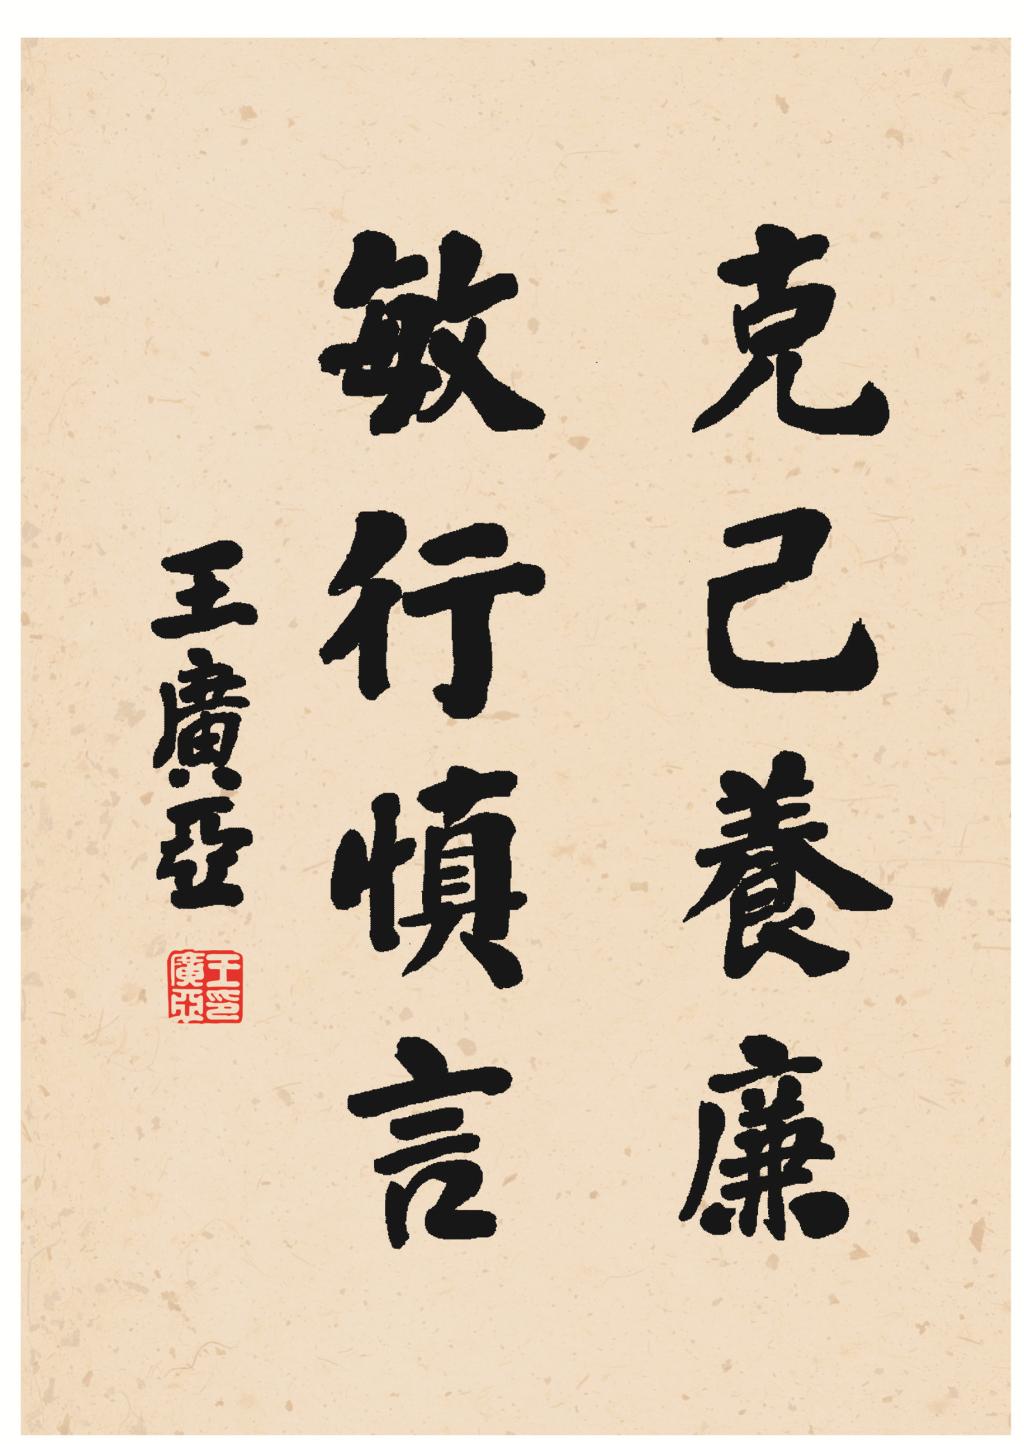 克己養廉
敏行慎言
王廣亞
王印廣亞